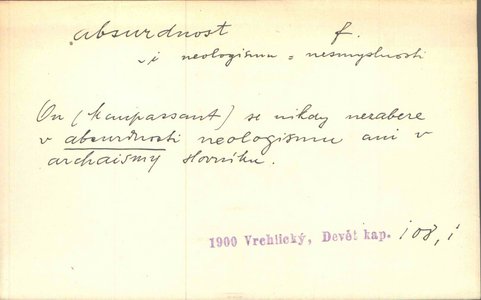 absurdnost f.
-i neologismu = nesmyslnosti
On (Maupassant) se nikdy nezabere
v absurdnosti neologismu ani v
archaismy slovníku.
1900 Vrchlický, Devět kap. 108,